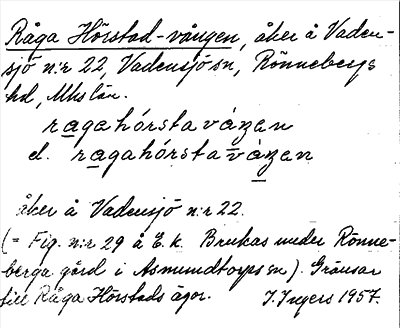 Råga Hörstad-vången, åker å Vaden-
sjö n:r 22, Vadensjö sn, Rönnebergs
hd, Mlhs län.
ragahórstavázen
el. ragahórstavázen
åker å Vadensjö n:r 22.
(= Fig. n:r 29 å E.k. Brukas under Rönne-
berga gård i Asmundtorps sn). Gränsar
till Råga Hörstads ägor. J. Ingers 1957.